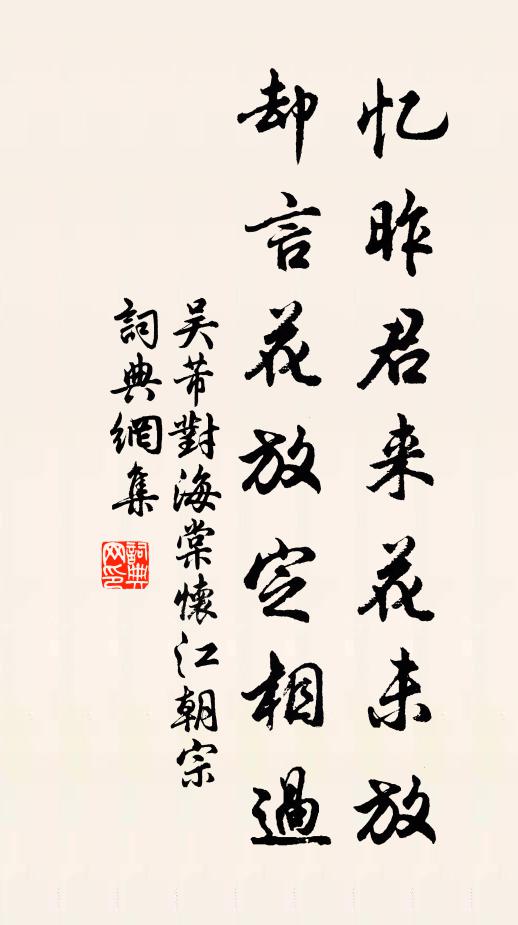 忆昨君来花未放
却言花放定相過
吴芾對海棠懷江朝宗
詞典網集
詞典網印